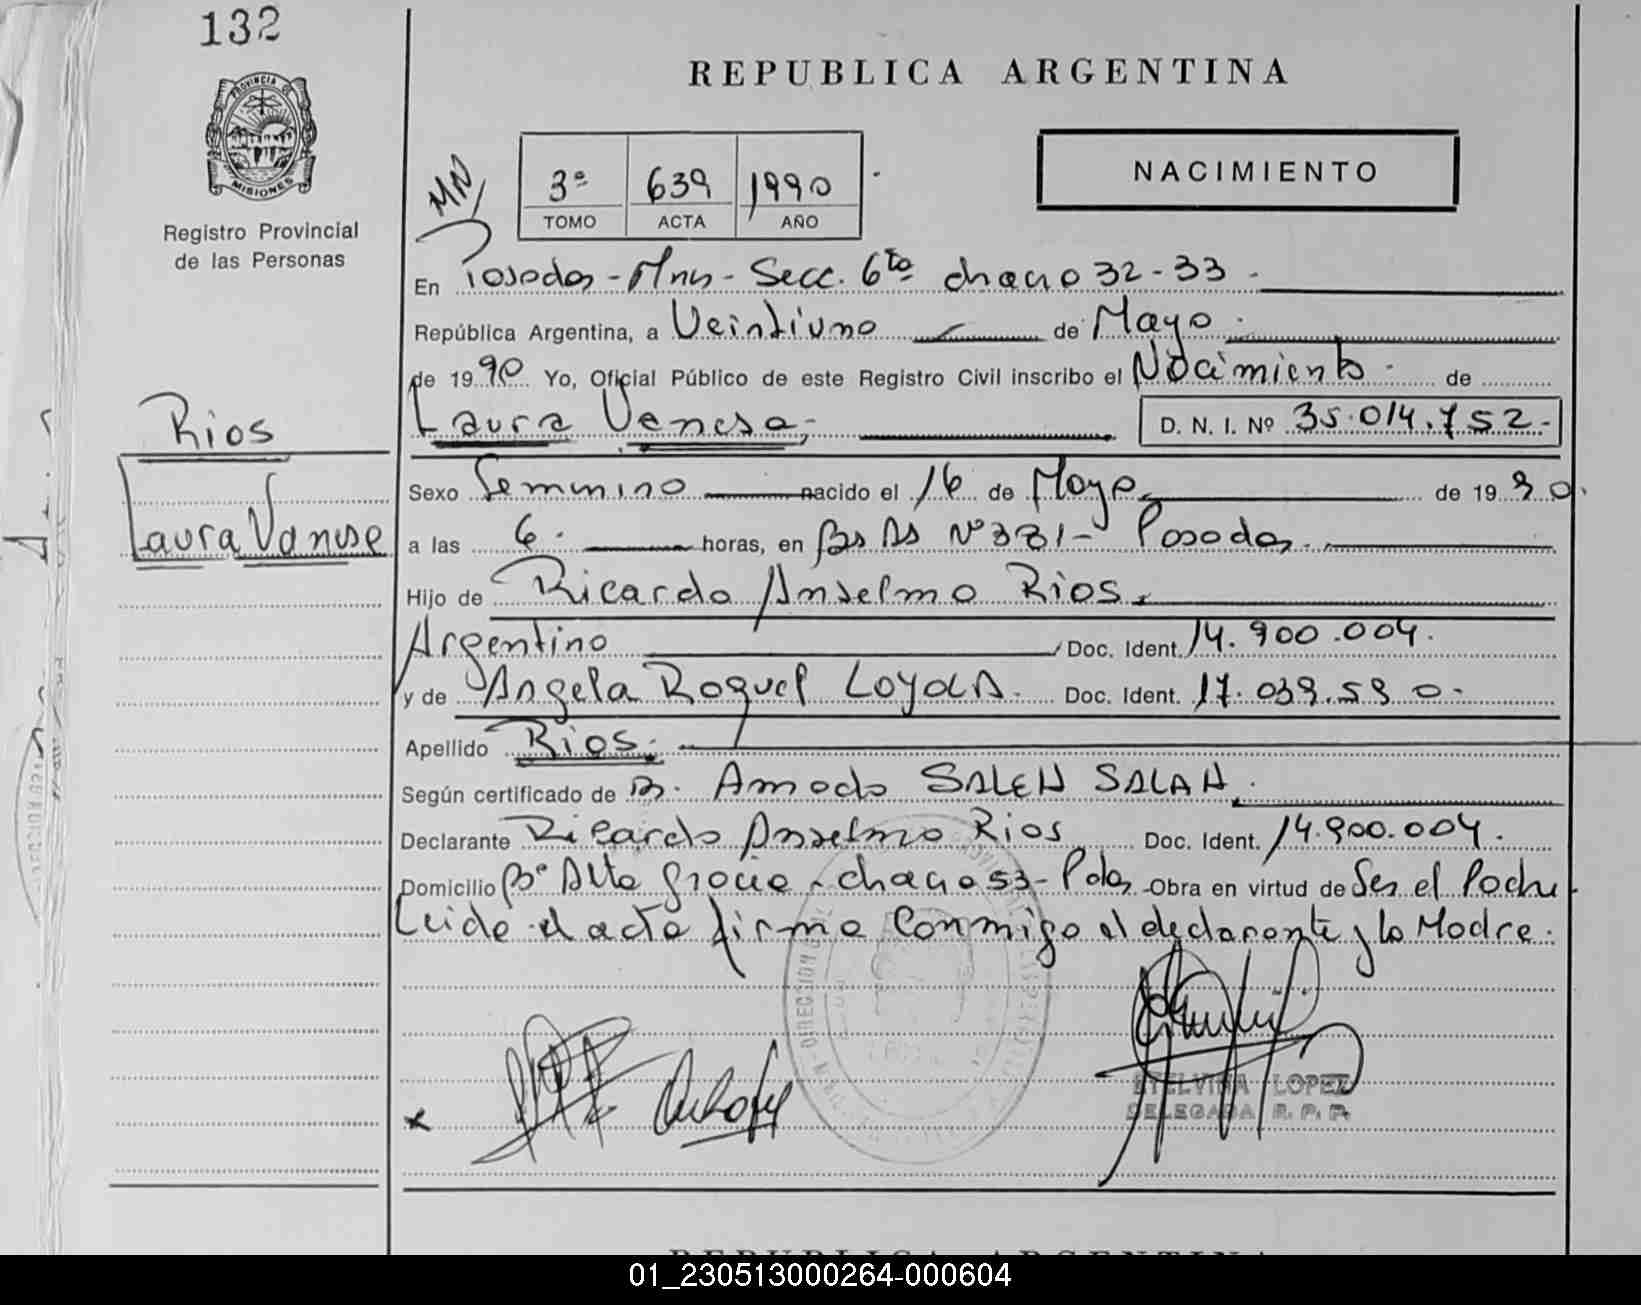 132
REPUBLICA ARGENTINA
PROVINCIA DE
MISIONES
Registro Provincial
de las Personas
3º 639 1990
TOMO ACTA AÑO
NACIMIENTO
En Posadas - Mns - Secc. 6ta chacra 32-33
República Argentina, a Veintiuno de Mayo
de 1990 Yo, Oficial Público de este Registro Civil inscribo el Nacimiento de
Laura Vanesa D. N. I. Nº 35.014.752.-
Rios
Laura Vanesa
Sexo Femenino nacido el 16 de Mayo de 1990.
a las 6 horas, en Bs As Nº 381 - Posadas
Hijo de Ricardo Anselmo Rios
Argentino Doc. Ident. 14.900.004.
y de Angela Raquel LOYOLA. Doc. Ident. 17.039.590-
Apellido Rios.
Según certificado de SALEH SALAH
Declarante Ricardo Anselmo Rios Doc. Ident. 14.900.004.
Domicilio Bº Alta gracia - chacra 53 - Pdas Obra en virtud de Ser el Padre
Leida el acta firma conmigo el declarante y la Madre.
ETELVINA LOPEZ
DELEGADA R. P. P.
REPUBLICA ARGENTINA
01_230513000264-000604